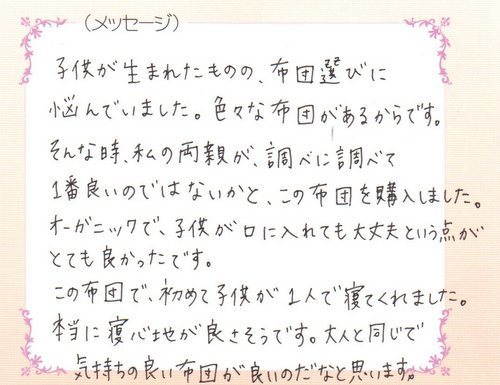 （メッセージ）
子供が生まれたものの、布団選びに
悩んでいました。色々な布団があるからです。
そんな時、私の両親が、調べに調べて
1番良いのではないかと、この布団を購入しました。
オーガニックで、子供が口に入れても大丈夫という点が
とても良かったです。
この布団で、初めて子供が1人で寝てくれました。
本当に寝心地が良さそうです。大人と同じで
気持ちの良い布団が良いのだなと思います。